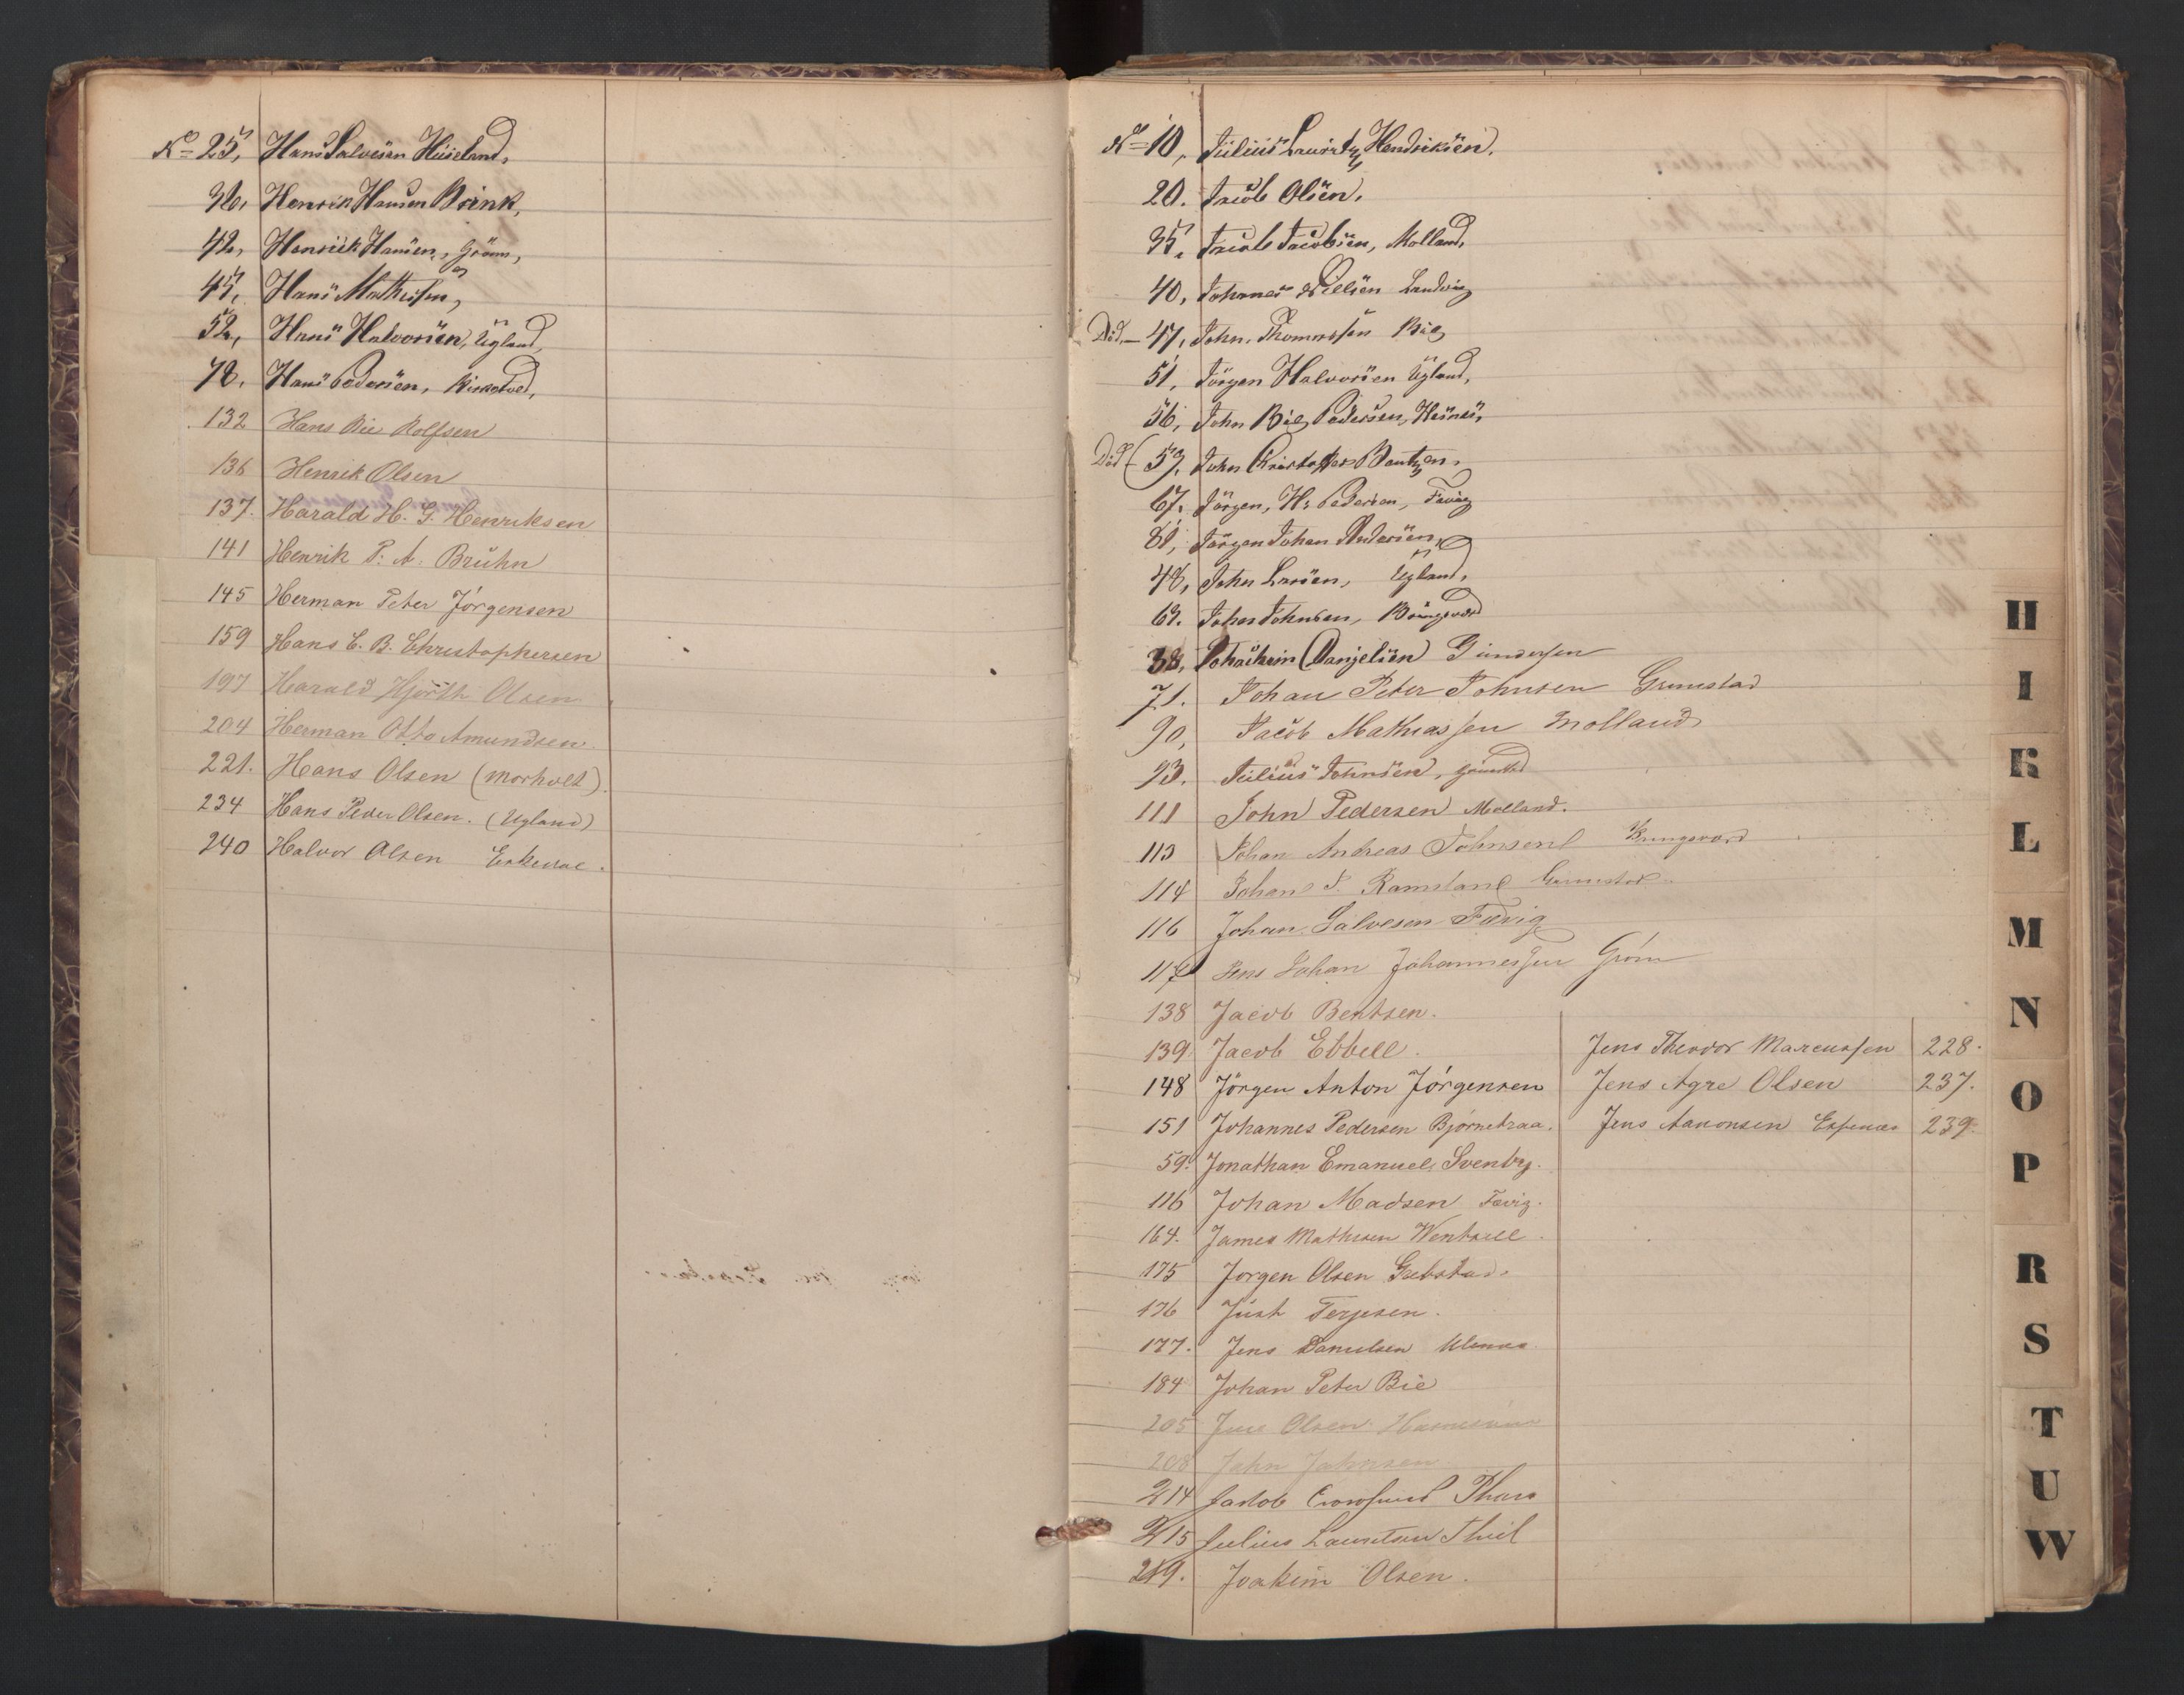 No 25, Hans Salvesen Huseland,
36, Henrik Hansen Brink,
42, Henrik Hansen, Gröm,
45, Hans Mathisen,
52, Hans Halvorsen, Ugland,
78, Hans Pedersen, Kirketved,
132 Hans Bie Rolfsen
136 Henrik Olsen
137. Harald H. G. Henriksen
141 Henrik P. A. Bruhn
145 Herman Peter Jörgensen
159 Hans C. B. Christophersen
197 Harald Hjorth Olsen
204 Herman Otto Amundsen
221. Hans Olsen (Morholt).
234 Hans Peder Olsen. (Ugland)
240 Halvor Olsen
No 10, Julius Lauritz Hendriksen.
20. Jacob Olsen.
35. Jacob Jacobsen, Molland,
40, Johannes Nielsen Landvig
Död. 47, John Thomassen Bie
51, Jörgen Halvorsen Ugland,
56, John Bie Pedersen,
Död (57, John Kristoffer Bentzen.
67. Jörgen, H. Pedersen, Fævig
81, Jörgen Johan Andersen
48, John Larsen, Ugland,
63. Johan Johnsen, Bringsværd
38, Joachim (Danjelsen) Gundersen
71. Johan Peter Johnsen Grimstad
90, Jacob Mathiassen Molland
93. Julius Johnsen, Grimstad
111 John Pedersen Molland.
113 Johan Andreas Johnsen Bringsværd
114 Johan T. Ramsland Grimstad
116 Johan Salvesen Fævig
117 Jens Johan Johannessen Gröm
138 Jacob Bentsen.
139. Jacob Ebbell. Jens Theodor Marcussen 228.
148 Jörgen Anton Jörgensen Jens Agre Olsen 237.
151 Johannes Pedersen Bjørnetraa. Jens Aanonsen Espenes 239.
59. Jonathan Emanuel Svenby.
116 Johan Madsen Fævig.
164. James Mathisen Wentzell.
175 Jorgen Olsen Grebstad.
176 Just Terjesen.
177. Jens Danielsen
184 Johan Peter Bie
205 Jens Olsen
208 John Johnsen
214 Jakob Thare
215 Julius Lauritsen
219. Joakim Olsen.
H
I
K
L
M
N
O
P
R
S
T
U
W